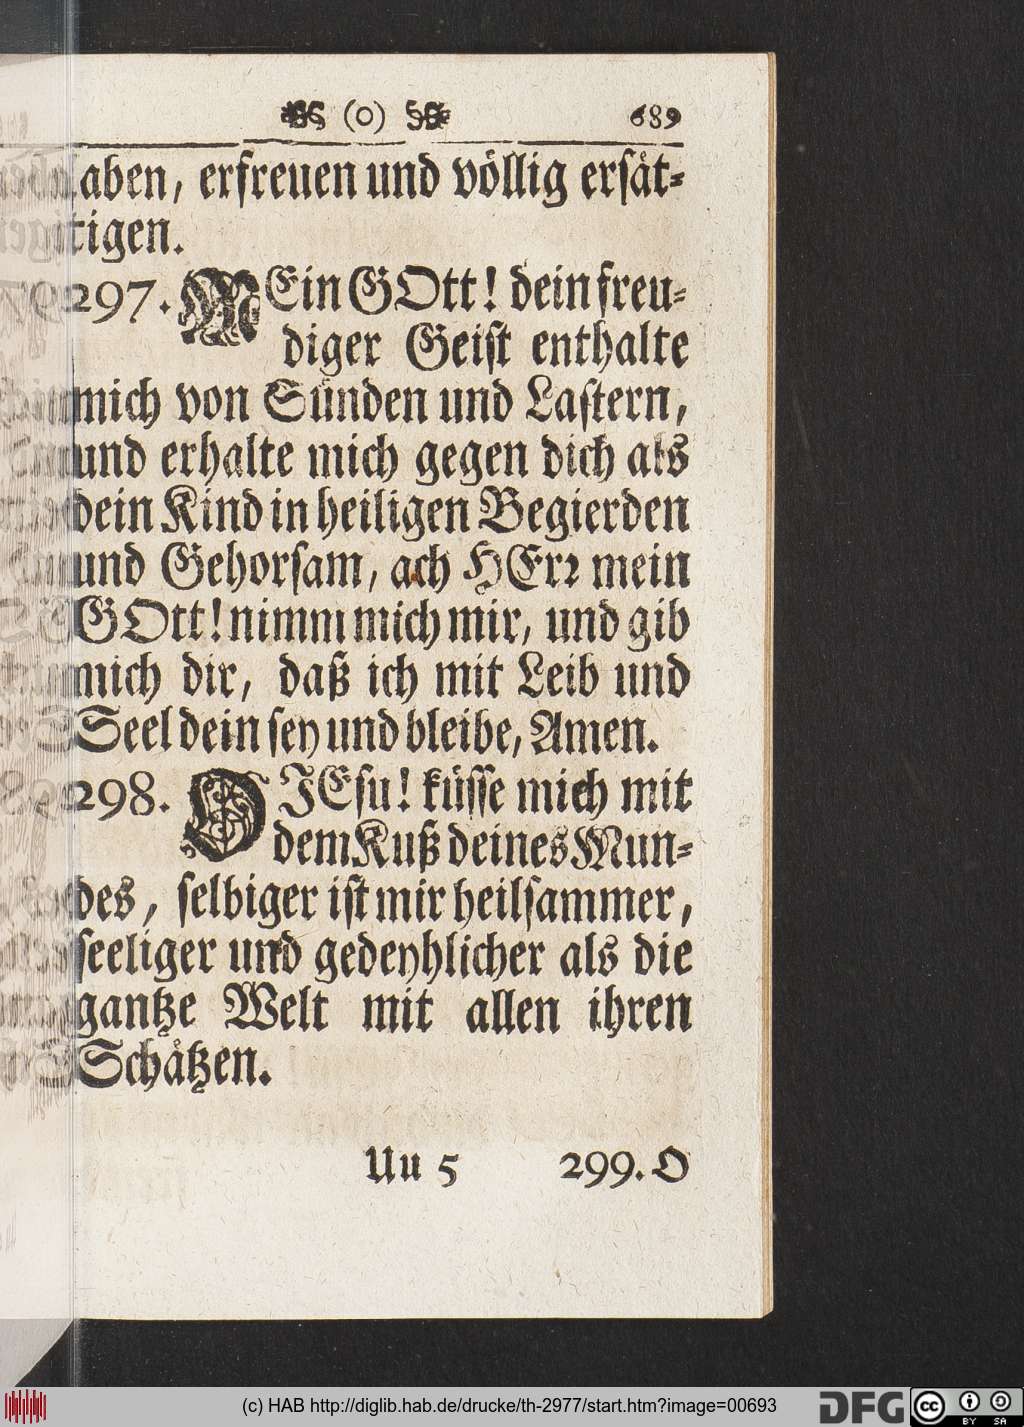 (o) 689
laben, erfreuen und völlig ersät⸗
tigen.
297. MEin GOtt! dein freu⸗
diger Geist enthalte
mich von Sünden und Lastern,
und erhalte mich gegen dich als
dein Kind in heiligen Begierden
und Gehorsam, ach HErr mein
GOtt! nimm mich mir, und gib
mich dir, daß ich mit Leib und
Seel dein sey und bleibe, Amen.
298. O JEsu! küsse mich mit
dem Kuß deines Mun⸗
des, selbiger ist mir heilsammer,
seeliger und gedeyhlicher als die
gantze Welt mit allen ihren
Schätzen.
Uu 5 299. O
(c) HAB http://diglib.hab.de/drucke/th-2977/start.htm?image=00693
DFG cc BY SA